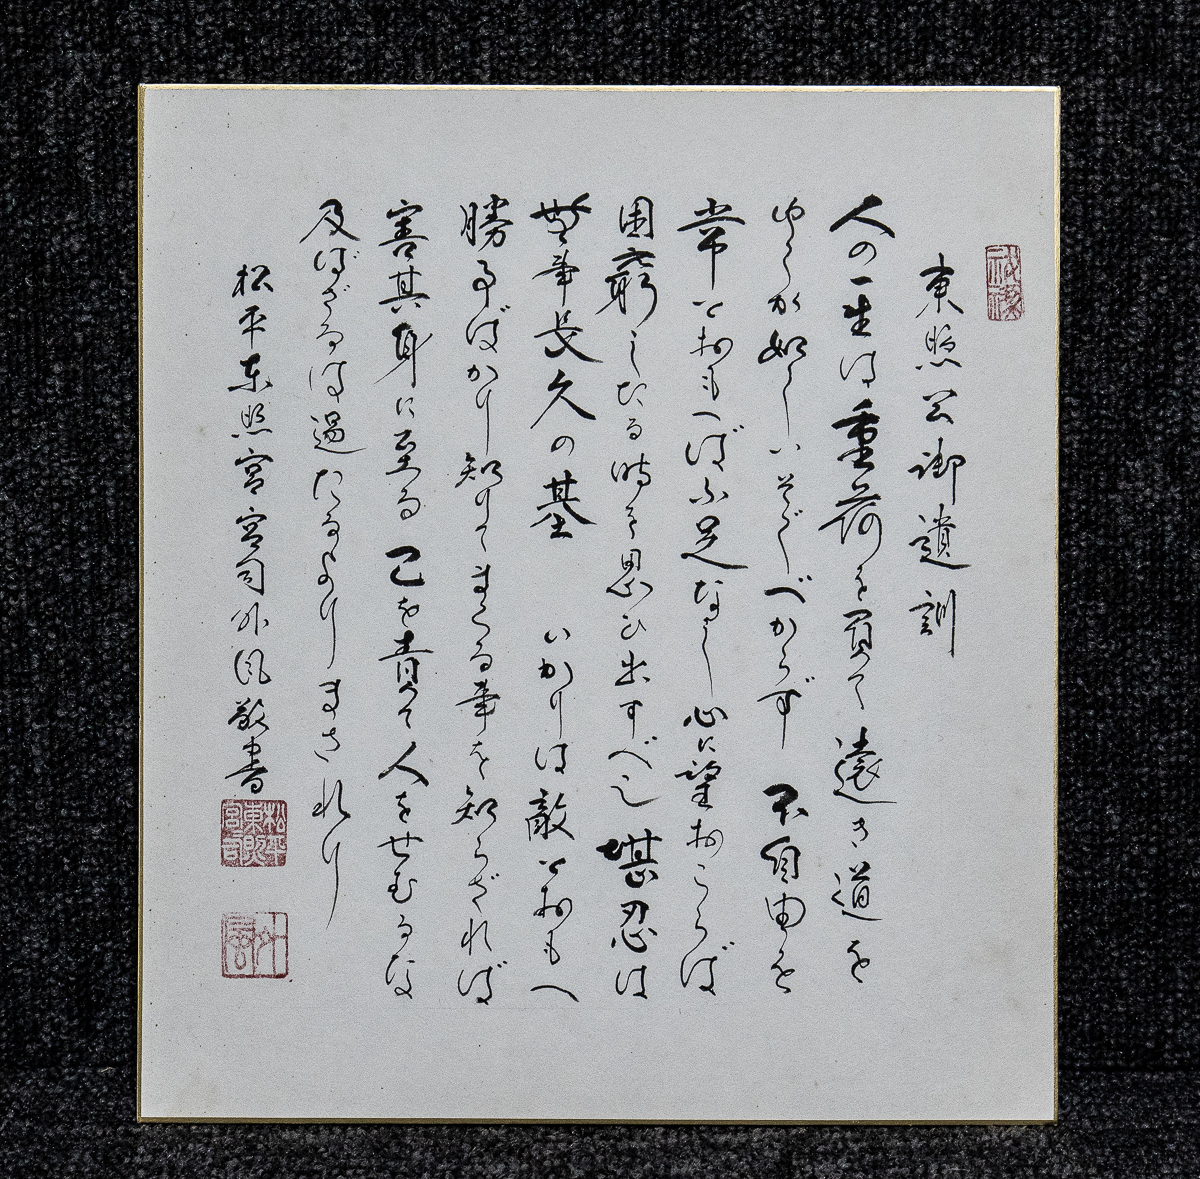 東照公御遺訓
人の一生は重荷を負て遠き道を
ゆくが如しいそぐべからず 不自由を
常とおもへば不足なし心に望おこらば
困窮したる時を思ひ出すべし堪忍は
無事長久の基 いかりは敵とおもへ
勝事ばかり知りてまくる事を知らざれば
害其身に至る 己を責て人をせむるな
及ばざるは過たるよりまされり
松平東照宮宮司外風敬書
松平東照宮司
外風